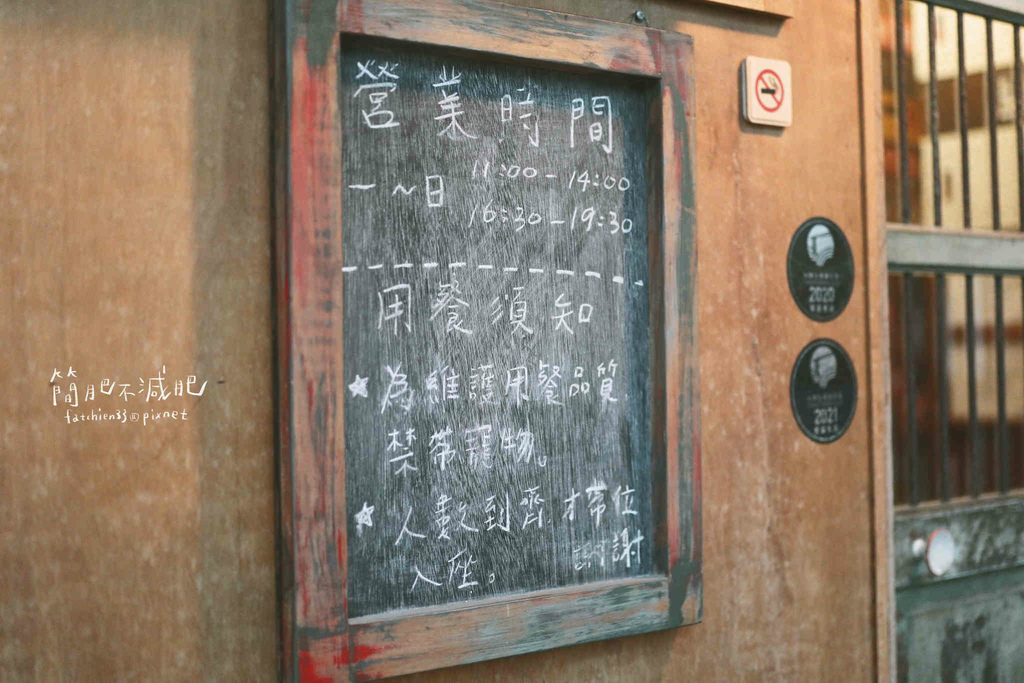 營業時間
一~日 11:00-14:00
16:30-19:30
用餐須知
★為維護用餐品質,
禁帶寵物。
★人數到齊,才帶位
入座。 謝謝
簡肥不減肥
fatchien33@pixnet
2020
2021